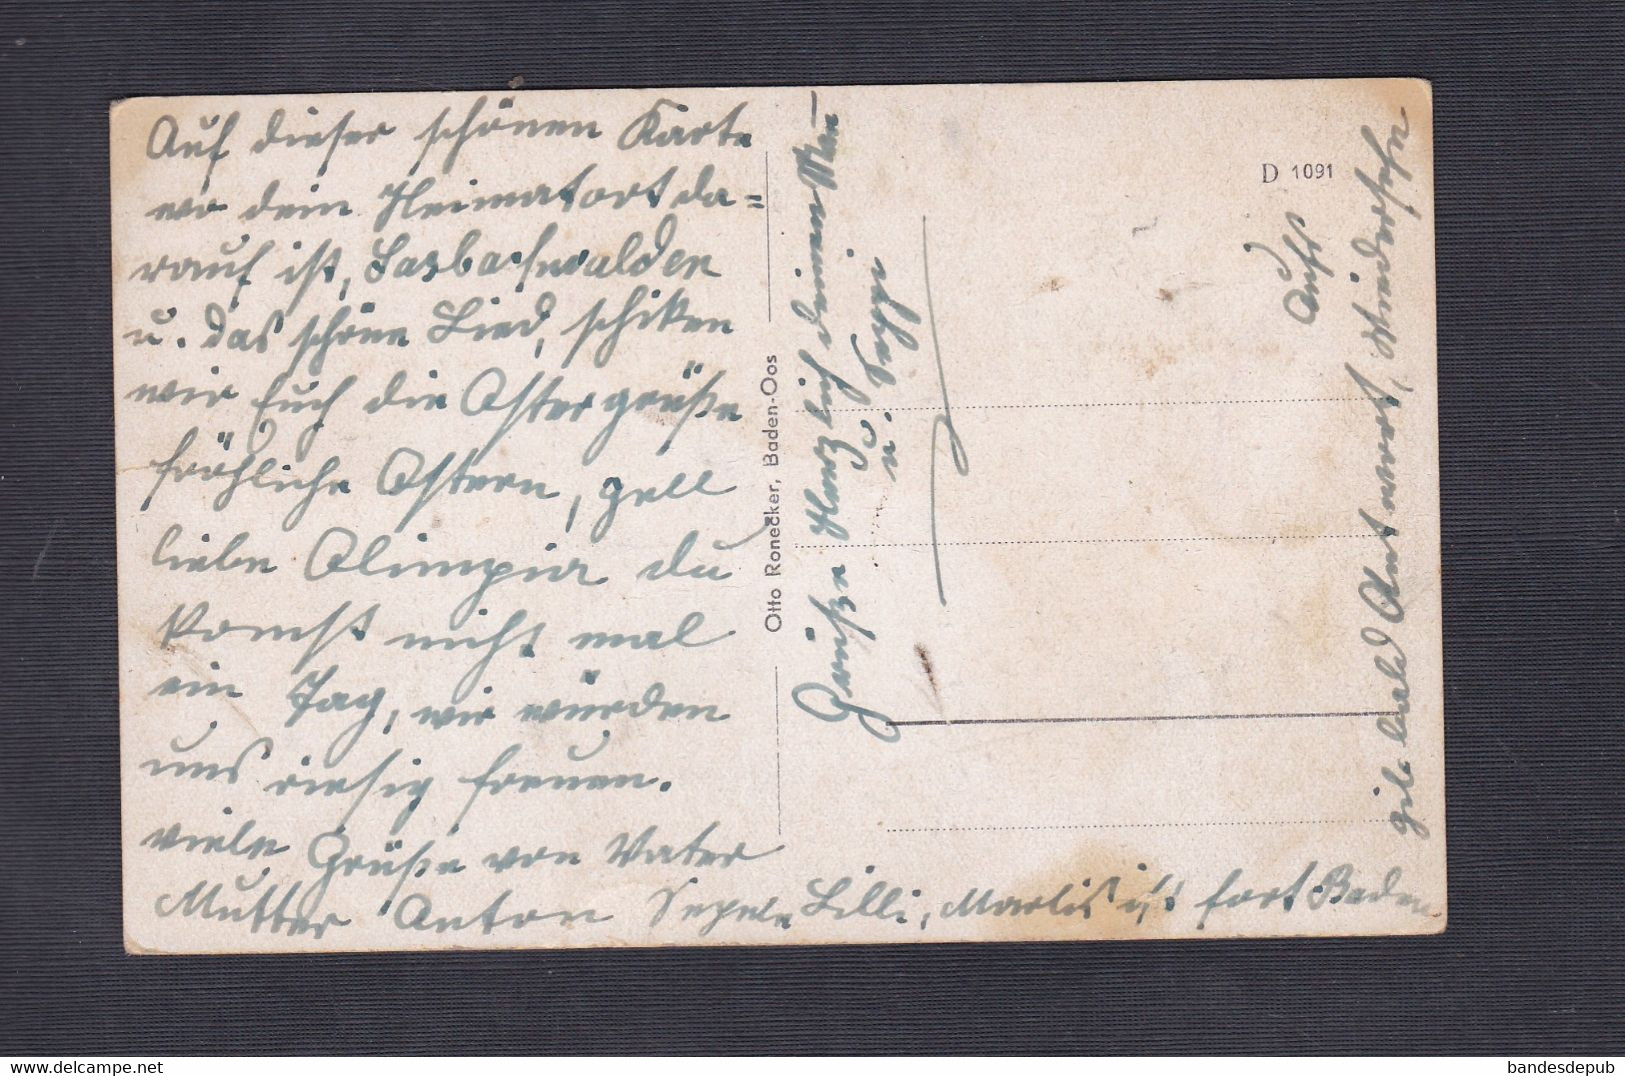 Auf dieser schönen Karte
wo dein Heimatort da=
rauf ist, Sasbachwalden
u. das schöne Lied, schiken
wir Euch die Ostergrüße
fröhliche Ostern, gell
liebe Olimpia du
komst nicht mal
ein Tag, wir würden
uns riesig freuen.
viele Grüße von Vater
Mutter Anton Sepele Lilli, Marlis ist fort Baden
Otto Ronecker, Baden-Oos
Grüße Herzlich deinen Man
u. Sephi
D 1091
Auf
gib bald Antwort, Wiedersehn
www.delcampe.net
bandesdepub